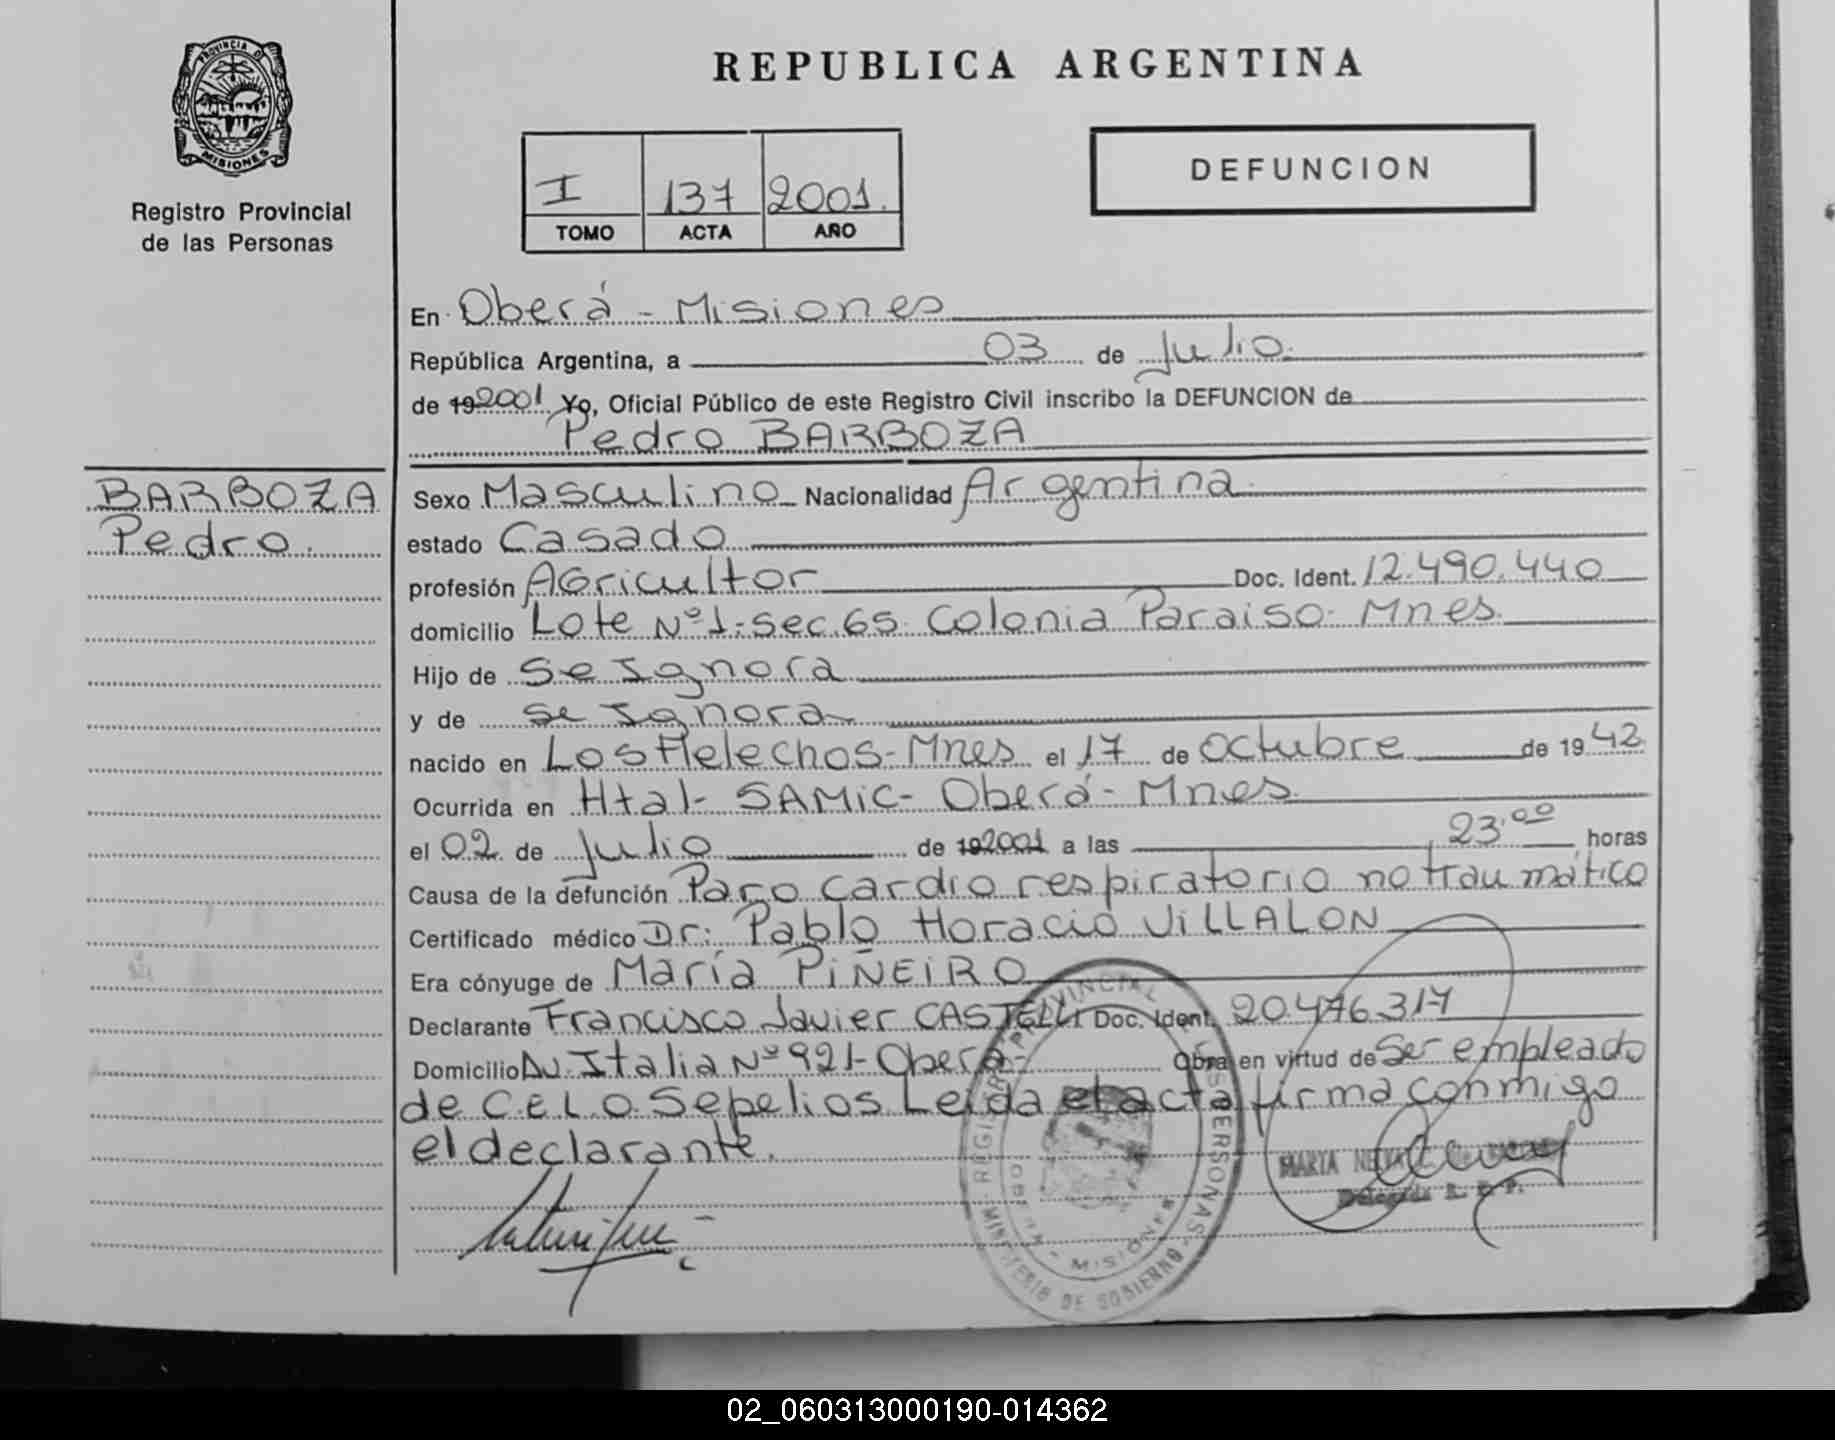 PROVINCIA DE
MISIONES
Registro Provincial
de las Personas
REPUBLICA ARGENTINA
I 137 2001.
TOMO ACTA AÑO
DEFUNCION
En Oberá - Misiones
República Argentina, a 03 de Julio.
de 19 2001 Yo, Oficial Público de este Registro Civil inscribo la DEFUNCION de
Pedro BARBOZA
BARBOZA
Pedro.
Sexo Masculino Nacionalidad Argentina.
estado Casado
profesión Agricultor Doc. Ident. 12.490.440
domicilio Lote Nº 1-Sec. 65. Colonia Paraiso. Mnes.
Hijo de Se Ignora
y de Se Ignora
nacido en Los Helechos-Mnes el 17 de Octubre de 19 42
Ocurrida en Htal- SAMIC- Oberá- Mnes.
el 02 de Julio de 19 2001 a las 23:00 horas
Causa de la defunción Paro cardio respiratorio no traumático
Certificado médico Dr: Pablo Horacio VILLALON
Era cónyuge de María PIÑEIRO
Declarante Francisco Javier CASTELLI Doc. Ident. 20.476.317
Domicilio Av. Italia Nº 921- Oberá- Obra en virtud de Ser empleado
de C.E.L.O. Sepelios. Leida el acta firma conmigo
el declarante.
REGISTRO PROVINCIAL DE LAS PERSONAS
MINISTERIO DE GOBIERNO
OBERA - MISIONES
MARIA
Delegada R. P. P.
02_060313000190-014362